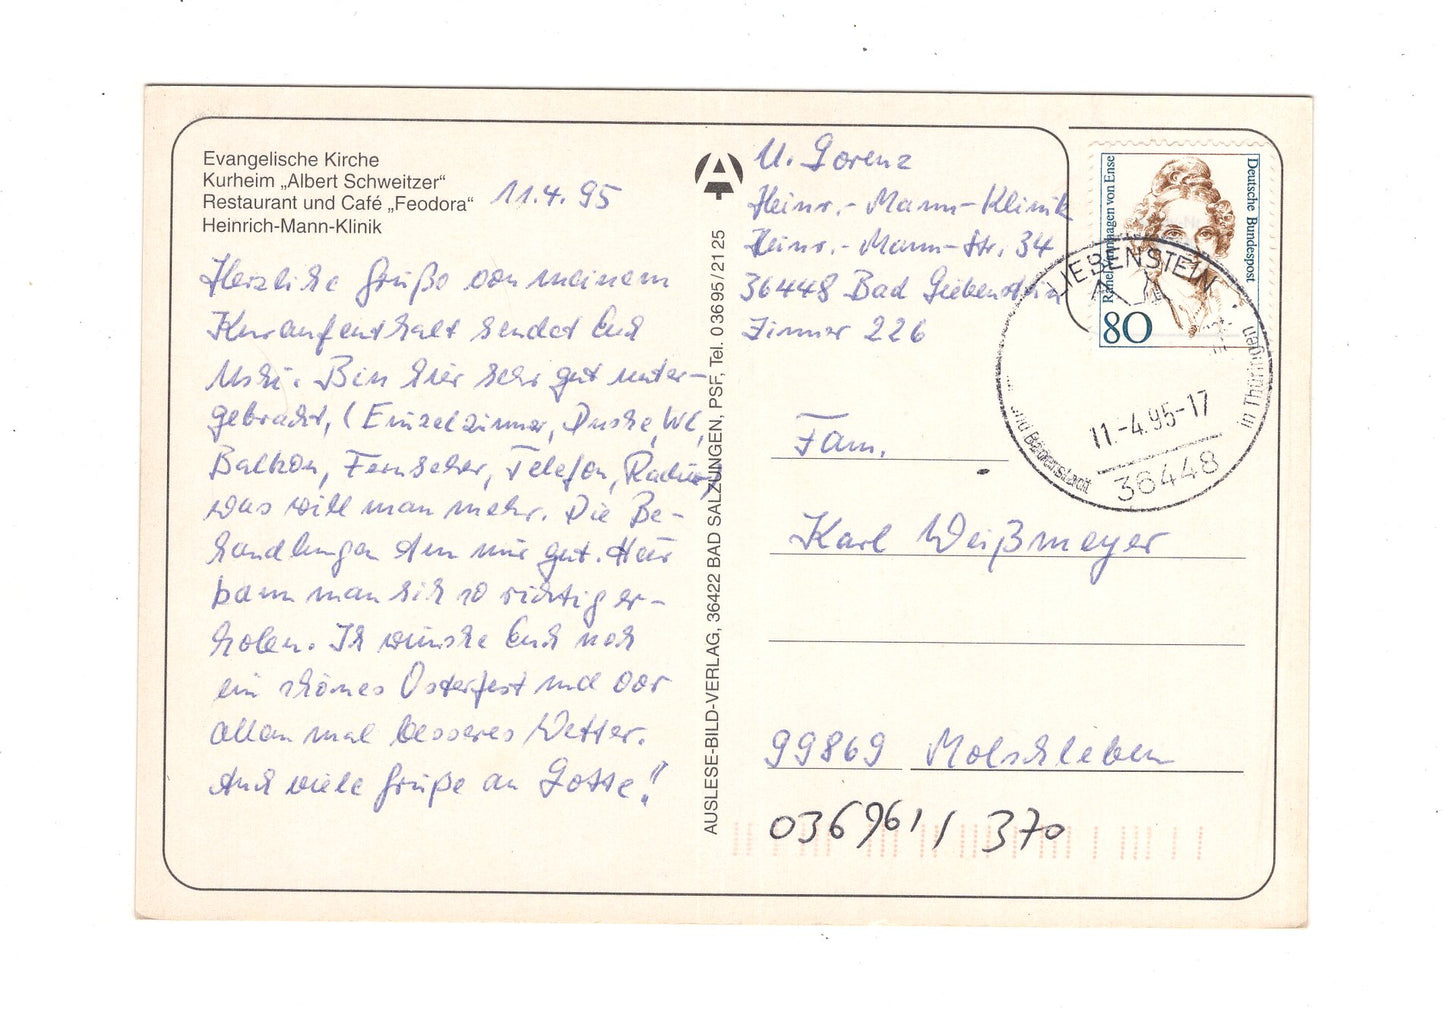 Evangelische Kirche
Kurheim „Albert Schweitzer“
Restaurant und Café „Feodora“
Heinrich-Mann-Klinik
11.4.95
Herzliche Grüße von meinem
Kuraufenthalt sendet Euch
Uschi. Bin hier sehr gut unter-
gebracht, (Einzelzimmer, Dusche, WC,
Balkon, Fernseher, Telefon, Radio)
was will man mehr. Die Be-
handlungen tun mir gut. Hier
kann man sich so richtig er-
holen. Ich wünsche Euch noch
ein schönes Osterfest und vor
allem mal besseres Wetter.
Auch viele Grüße an Lotte!
AUSLESE-BILD-VERLAG, 36422 BAD SALZUNGEN, PSF, Tel. 0 36 95 / 21 25
U. Lorenz
Heinr.-Mann-Klinik
Heinr.-Mann-Str. 34
36448 Bad Liebenstein
Zimmer 226
Rahel Varnhagen von Ense
Deutsche Bundespost
80
LIEBENSTEIN
11-4.95-17
36448
in Thüringen
Fam.
Karl Weißmeyer
99869 Molschleben
036961 / 370